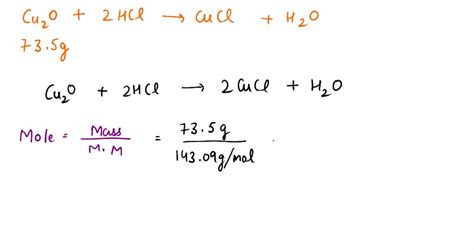 Cu₂O + 2HCl → CuCl + H₂O
73.5g
Cu₂O + 2HCl → 2CuCl + H₂O
Mole = Mass / M.M = 73.5g / 143.09g/mol